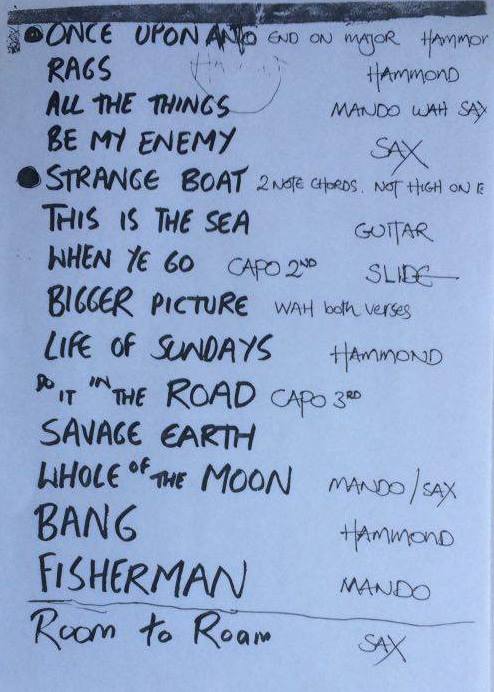 ONCE UPON AND END ON MAJOR HAMMOR
RAGS HAMMOND
ALL THE THINGS MANDO WAH SAX
BE MY ENEMY SAX
STRANGE BOAT 2 NOTE CHORDS. NOT HIGH ON E
THIS IS THE SEA GUITAR
WHEN YE GO CAPO 2ND SLIDE
BIGGER PICTURE WAH both verses
LIFE OF SUNDAYS HAMMOND
DO IT IN THE ROAD CAPO 3RD
SAVAGE EARTH
WHOLE OF THE MOON MANDO/SAX
BANG HAMMOND
FISHERMAN MANDO
Room to Roam SAX